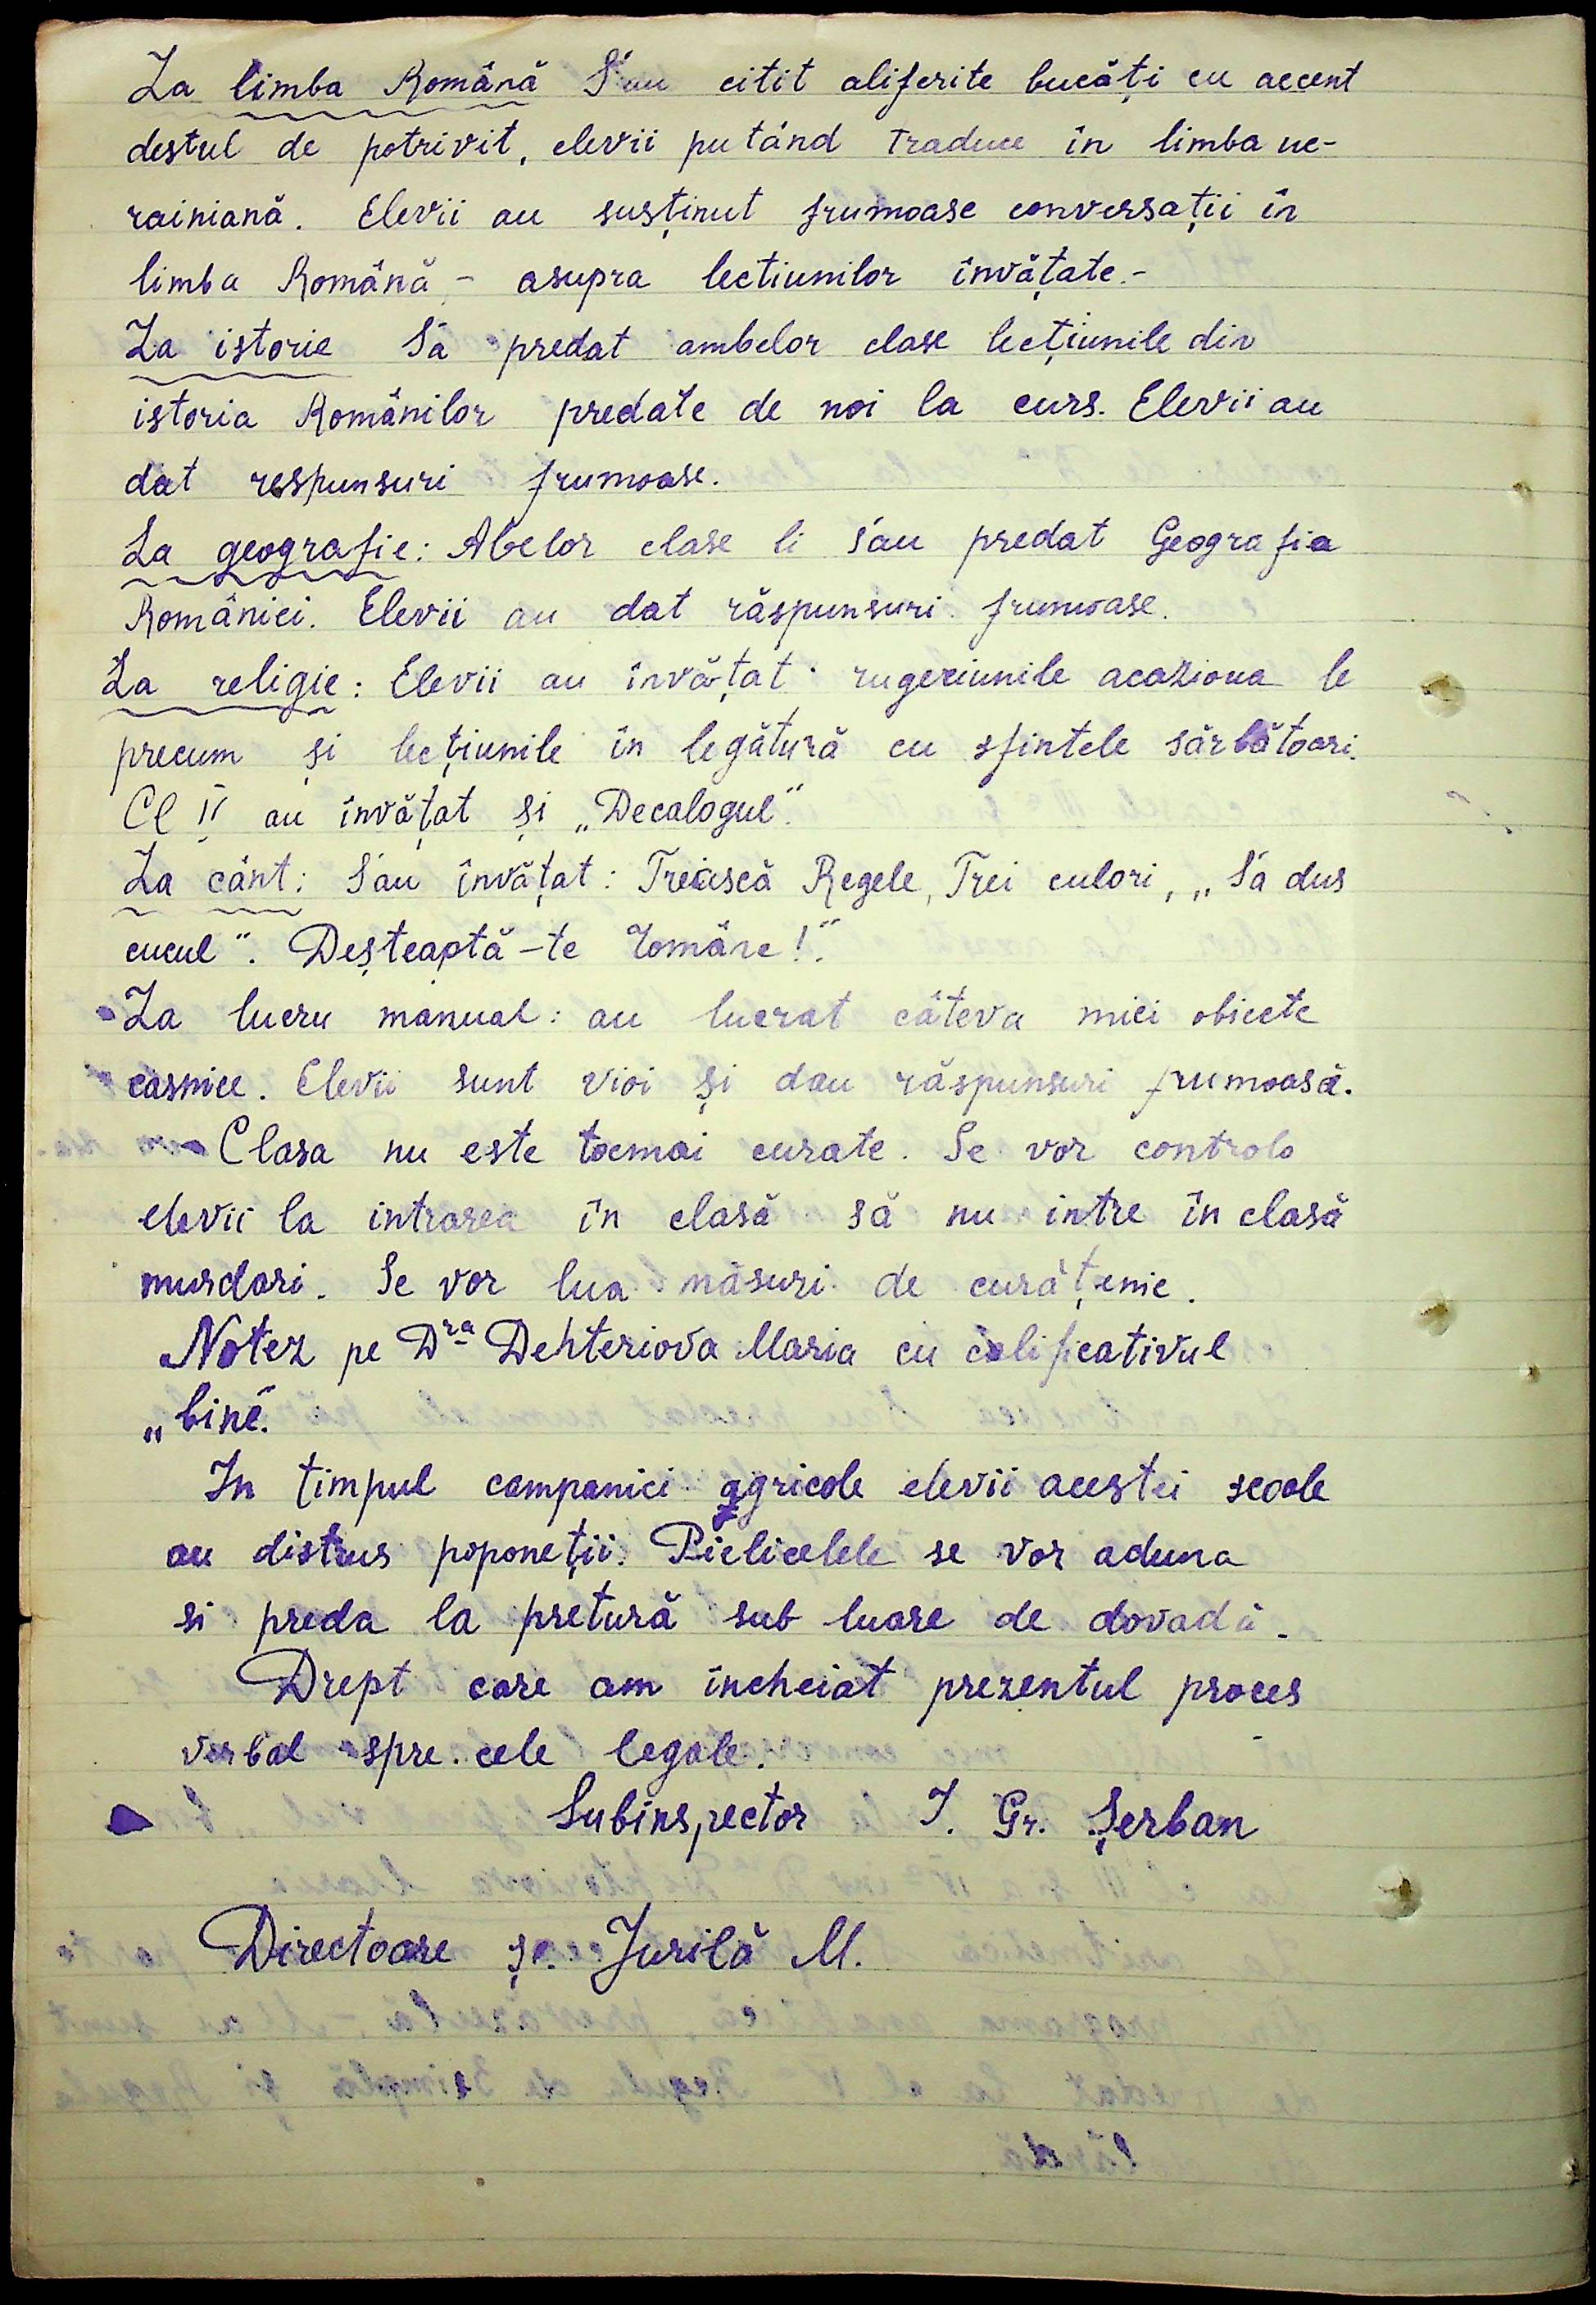 La limba Română S'au citit aliferite bucăți cu accent
destul de potrivit, elevii putând traduce în limba uc-
rainiană. Elevii au susținut frumoase conversații în
limba Română - asupra lectiunilor învățate.-
La istorie S'a predat ambelor clase lecțiunile din
istoria Românilor predate de noi la curs. Elevii au
dat respunsuri frumoase.
La geografie: Abelor clase li s'au predat Geografia
României. Elevii au dat răspunsuri frumoase.
La religie: Elevii au învățat rugeciunile acaziona le
precum și lecțiunile în legătură cu sfintele sărbătoari.
Cl II au învățat și „Decalogul".
La cânt: S'au învățat: Treiască Regele, Trei culori, „S'a dus
cucul". Deșteaptă-te Române!".
La lucru manual: au lucrat câteva mici obiecte
casnice. Elevii sunt vioi și dau răspunsuri frumoasă.
- Clasa nu este tocmai curate. Se vor controlo
elevii la intrarea în clasă să nu intre în clasă
murdari. Se vor lua măsuri de curățenie.
Notez pe Dra Dehteriova Maria cu calificativul
„bine".
In timpul companiei agricole elevii acestei scoole
au distrus poponeții. Pielicelele se vor aduna
si preda la pretură sub luare de dovadă.
Drept care am încheiat prezentul proces
verbal spre cele legale.
Subinspector I. Gr. Șerban
Directoare șc. Jurilă M.